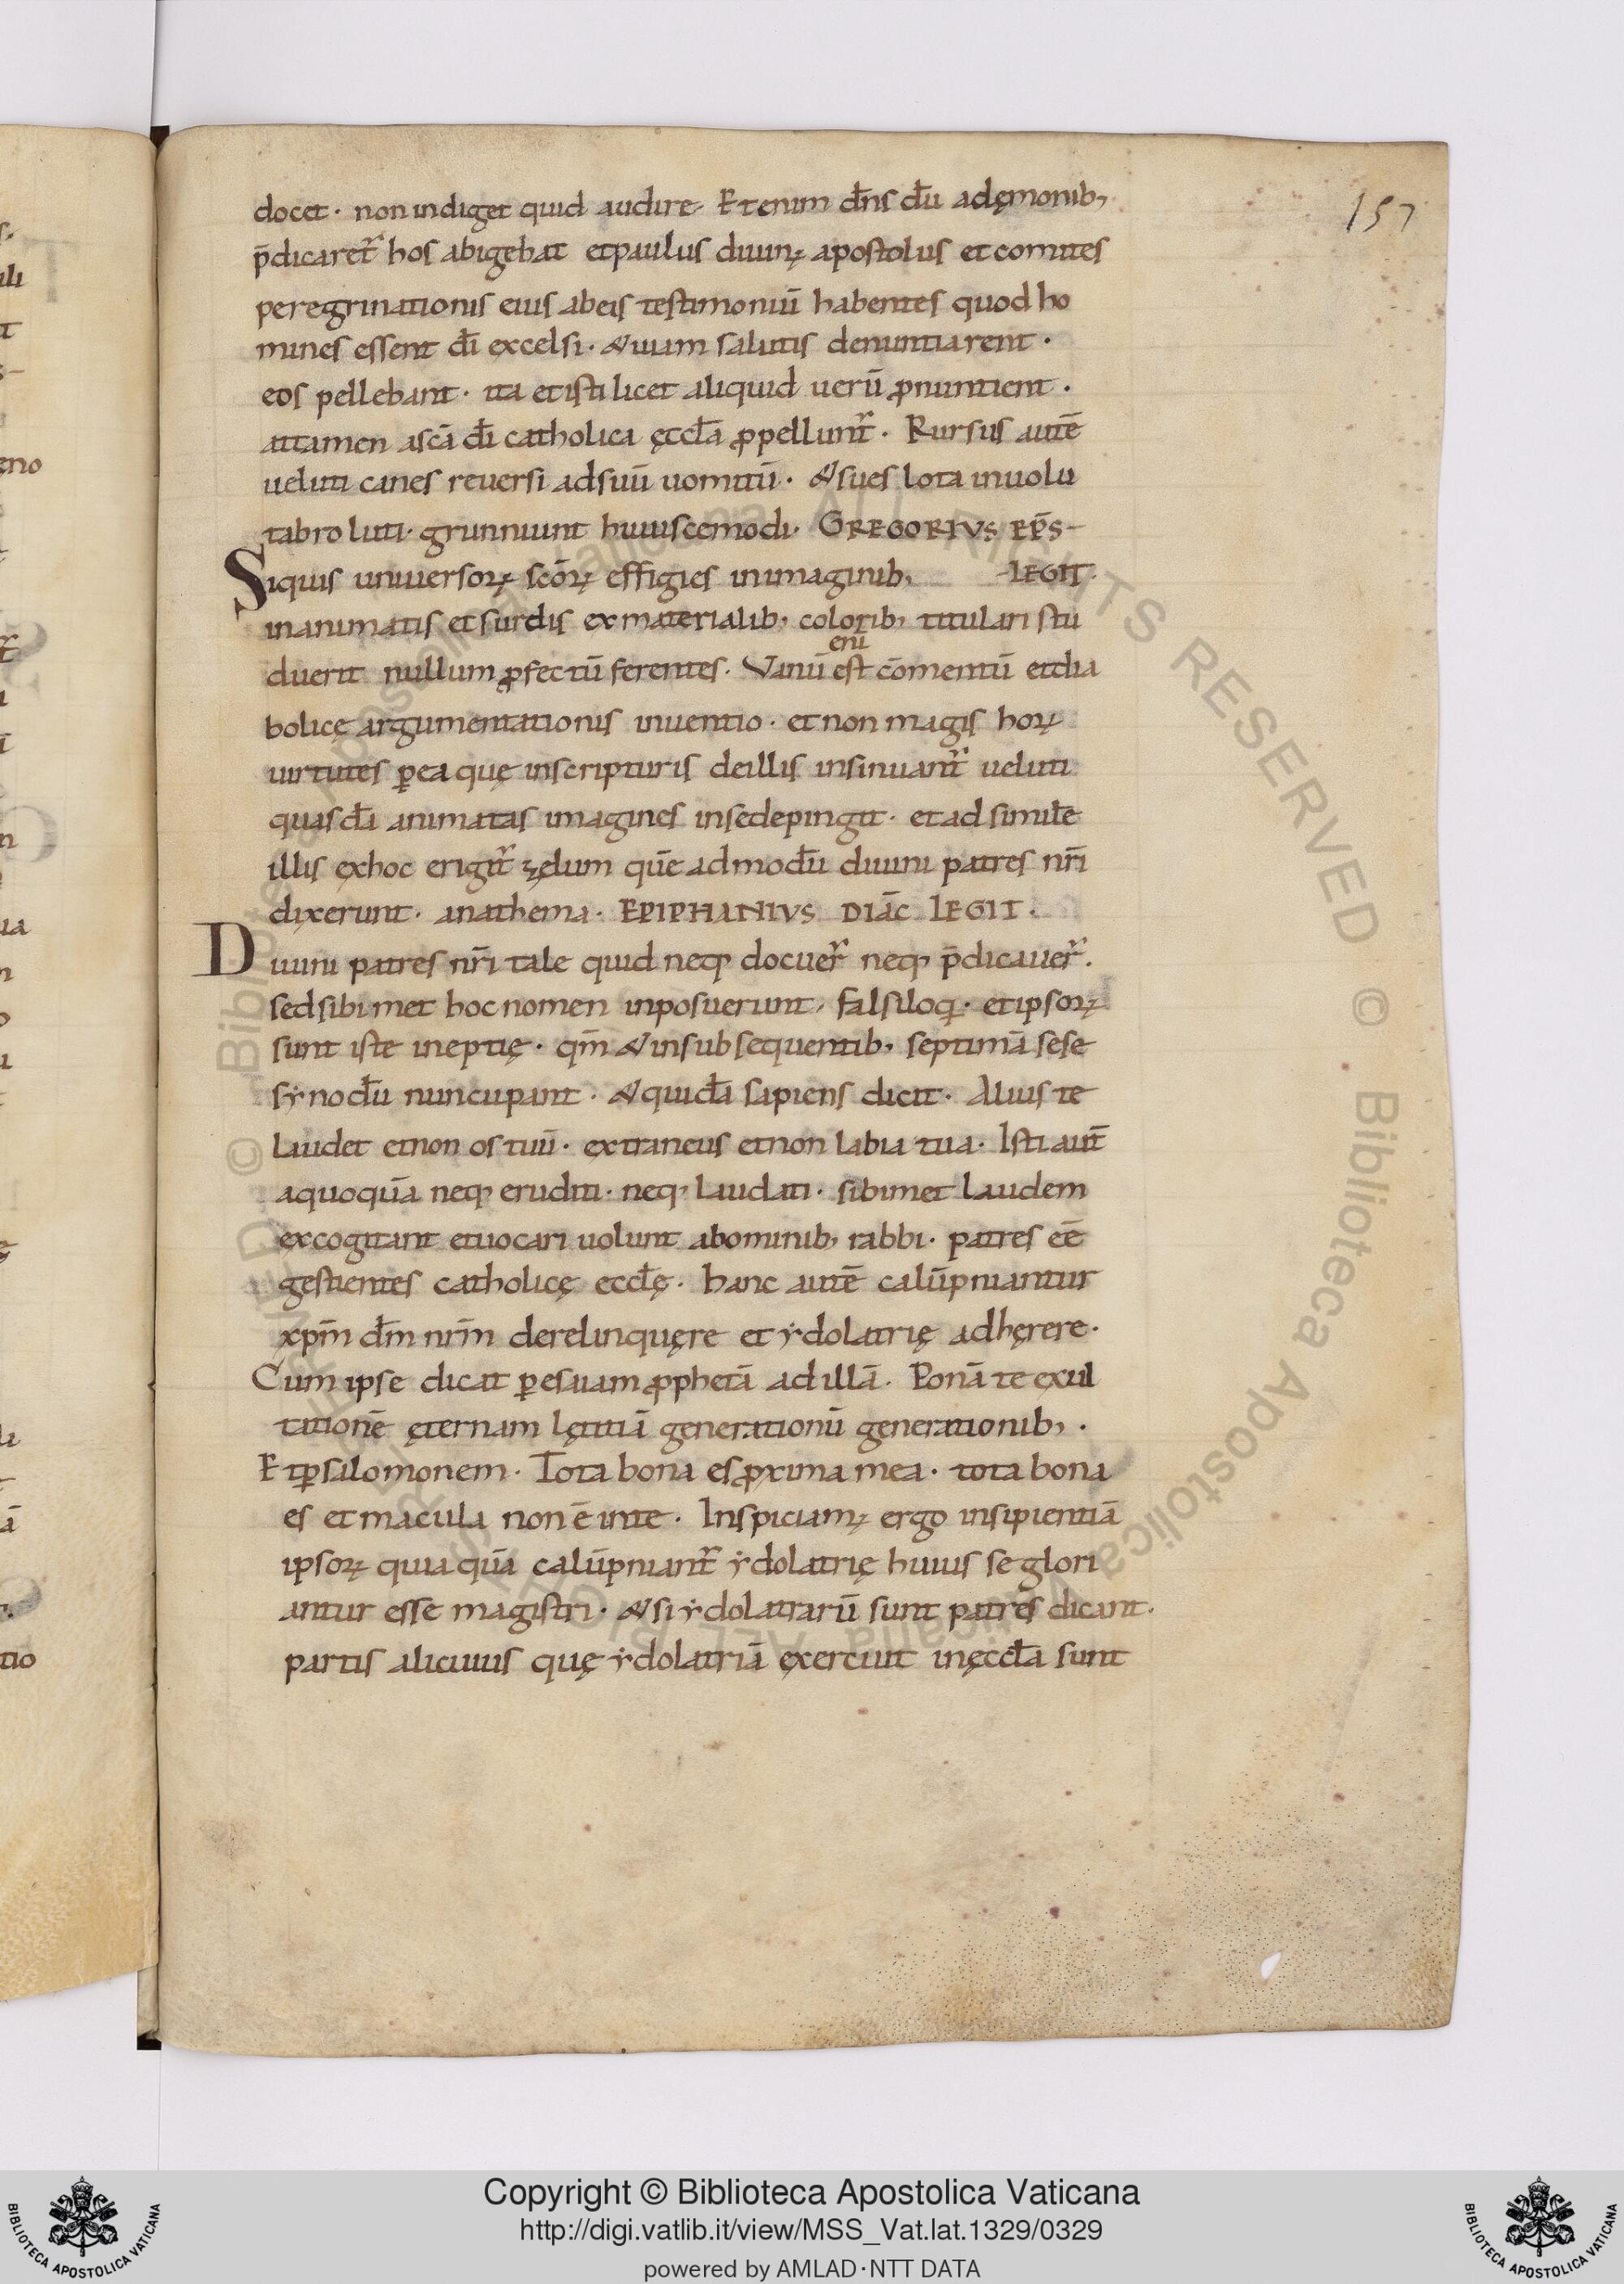 157
docet· non indiget quid audire· Etenim dn̄s dū adęmonib;
p̄dicaret᷑ hos abigebat et paulus diuinꝰ apostolus et comites
peregrinationis eius abeis testimoniū habentes quod ho
mines essent dī excelsi· & uiam salutis denuntiarent·
eos pellebant· ita et isti licet aliquid uerū ꝓnuntient·
attamen ascā dī catholica ęccl̄a ꝓpellunt᷑· Rursus autē
ueluti canes reuersi ad suū uomitū· & sues lota in uolu
tabro luti· grunniunt huiuscemodi· GREGORIVS EP̄S
Siquis uniuersoꝝ scōꝝ effigies in imaginib; LEGIT·
inanimatis et surdis ex materialib; colorib; titulari stu
enī
duerit nullum ꝓfectū ferentes· Vanū est cōmentū et dia
bolicę argumentationis inuentio· et non magis hoꝝ
uirtutes ꝑea quę inscripturis deillis insinuant᷑ ueluti
quasdā animatas imagines insedepingit· et ad simile
illis exhoc erigit᷑ zęlum quēadmodū diuini patres nr̄i
dixerunt· anathema· EPIPHANIVS DIAC̄ LEGIT·
Diuini patres nr̄i tale quid neq; docuer᷑ neq; p̄dicauer᷑·
sed sibimet hoc nomen inposuerunt, falsiloq̇· et ipsoꝝ
sunt iste ineptię· qm̄ & insubsequentib; septimā sese
sẏnodū nuncupant· & quidā sapiens dicit· Alius te
laudet et non os tuū· extraneus et non labia tua· Isti aut̄
aquoquā neq; eruditi· neq; laudati· sibimet laudem
excogitant et uocari uolunt abominib; rabbi· patres eē
gestientes catholicę eccl̄ę· hanc autē calūpniantur
xp̄m dm̄ nrm̄ derelinquęre et ẏdolatrię adhęrere·
Cum ipse dicat ꝑesaiam ꝓphetā ad illā· Ponā te exul
tationē ęternam lętitiā generationū generationib;·
Et ꝑsalomonem· Tota bona es ꝓxima mea· tota bona
es et macula non ē inte· Inspiciamꝰ ergo insipientiā
ipsoꝝ quia quā calūpniant᷑ ẏdolatrię huius se glori
antur esse magistri· & si ẏdolatrarū sunt patres dicant·
partis alicuius quę ẏdolatriā exercuit inęccl̄a sunt
Copyright © Biblioteca Apostolica Vaticana
http://digi.vatlib.it/view/MSS_Vat.lat.1329/0329
powered by AMLAD·NTT DATA